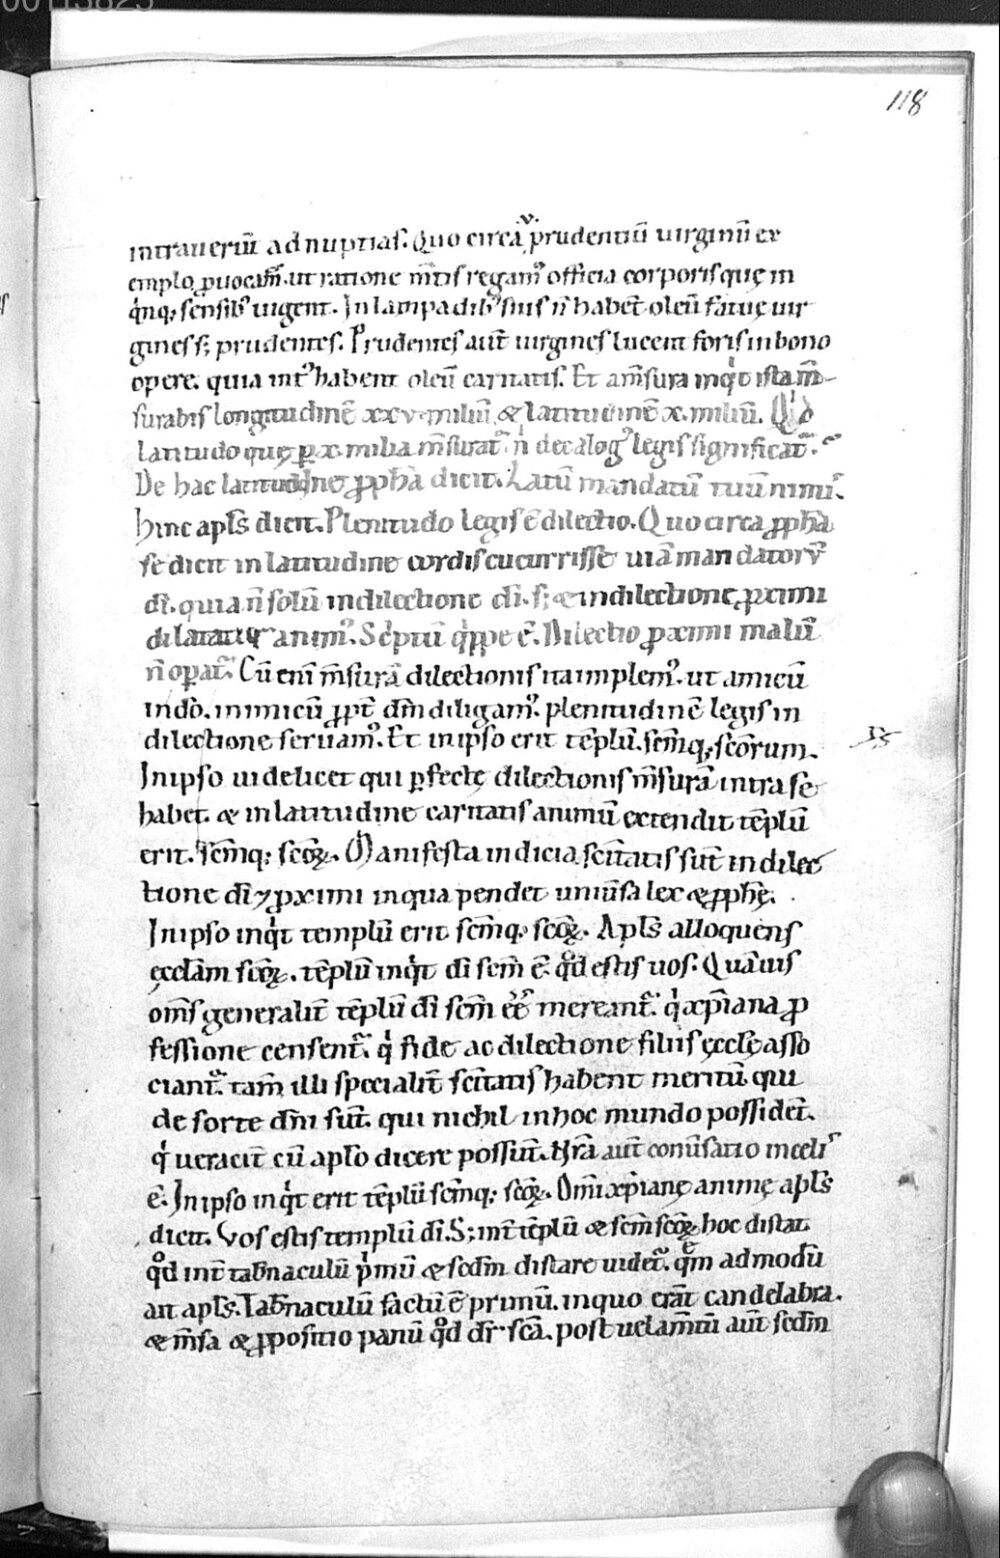 00113823
118
intrauerūt ad nuptias. Quo circa prudentiū uirginū ex
emplo ꝓuocati. ut ratione m̄tis regam᷒ officia corporis quę in
qͥnq; sensib᷒ uigent. In lampadib᷒ suis n̄ habēt oleū fatuę uir
gines s; prudentes. Prudentes aut̄ uirgines lucent foris in bono
opere. quia int᷒ habent oleū caritatis. Et am̄sura inqͥt ista m̄
surabis longitudinē xxv. miliū & latitudinē x. miliū. Qͥd
latitudo quę ꝑ x. milia m̄surat᷑. n̄ decalog᷒ legis significat᷑.
De hac latitudine ꝓpha dicit. Latū mandatū tuū nimis.
hinc apl̄s dicit. Plenitudo legis ē dilectio. Quo circa ꝓpha
se dicit in latitudine cordis cucurrisse uiā mandatorū
dī. quia n̄ solū in dilectione dī. s; & in dilectione ꝓximi
dilatatur anim᷒. Scͥptū qͥppe ē. Dilectio ꝓximi malū
n̄ oꝑat᷑. Cū eni m̄surā dilectionis ita implem᷒. ut amicū
in dō. inimicū ꝓpt̄ dm̄ diligam᷒. plenitudinē legis in
dilectione seruam᷒. Et in ipso erit tēplū. sem̄q; scōrum.
In ipso uidelicet qui ꝑfectę dilectionis m̄surā intra se
habet. & in latitudine caritatis animū extendit tēplū
erit. sem̄q; scōꝝ. Manifesta indicia sc̄itatis sūt in dilec
tione dī ⁊ ꝓximi in qua pendet uniūsa lex & ꝓphę.
In ipso inqͥt templū erit scm̄q; scōꝝ. Apl̄s alloquens
ęcclām scōꝝ. tēplū inqͥt dī scm̄ ē. qͦd estis uos. Quāuis
om̄s generalit̄ tēplū dī scm̄ ee̅ mereant᷑. qͥ xp̄iana ꝓ
fessione censent᷑. qͥ fide ac dilectione filiis ęcclę asso
ciant᷑. tam̄ illi specialit̄ sc̄itatis habent meritū qui
de sorte dn̄i sūt. qui nichil in hoc mundo possidēt.
qͥ ueracit̄ cū apl̄o dicere possūt. Nr̄a aut̄ conūsatio in celis
ē. In ipso inqͥt erit tēplū scm̄q; scōꝝ. Om̄i xp̄ianę animę apl̄s
dicit. Vos estis templū dī. S; int̄ tēplū & scm̄ scōꝝ hoc distat.
qͦd int̄ tab̄naculū pͥmū & scdm̄ distare uidet᷑. quē̄m admodū
ait apl̄s. Tab̄naculū factū ē primū. in quo erāt candelabra.
& m̄sa & ꝓpositio panū qͦd dr̄ scā. post uelam̄tū aut̄ scdm̄